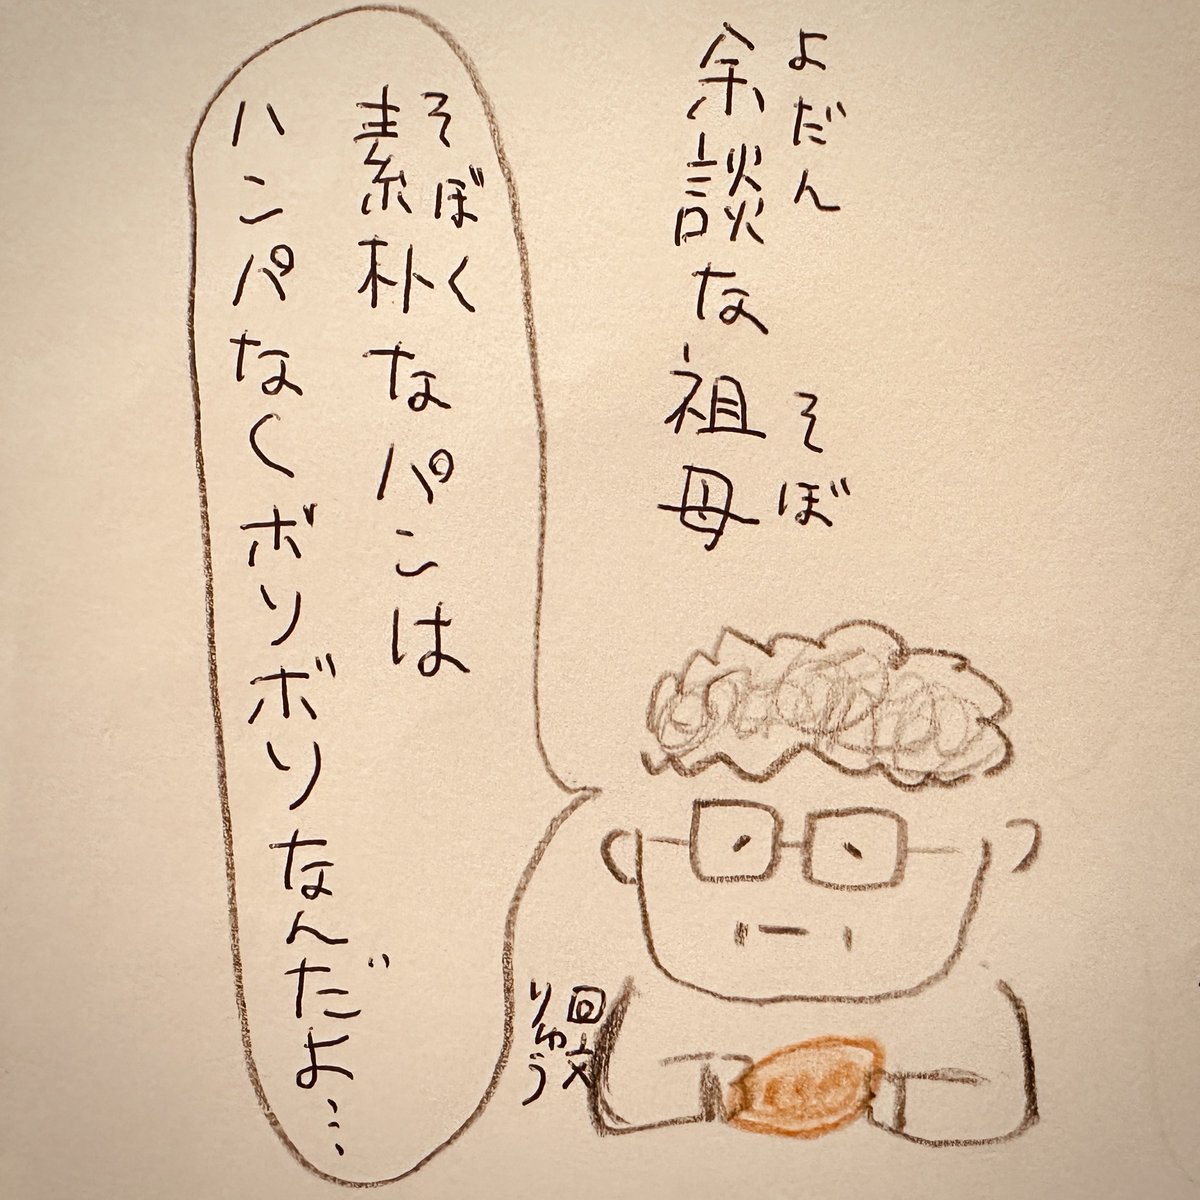 よだん そぼ
余談な祖母
そぼく
素朴なパンは
ハンパなくボソボソなんだよ…
回文
りゅう